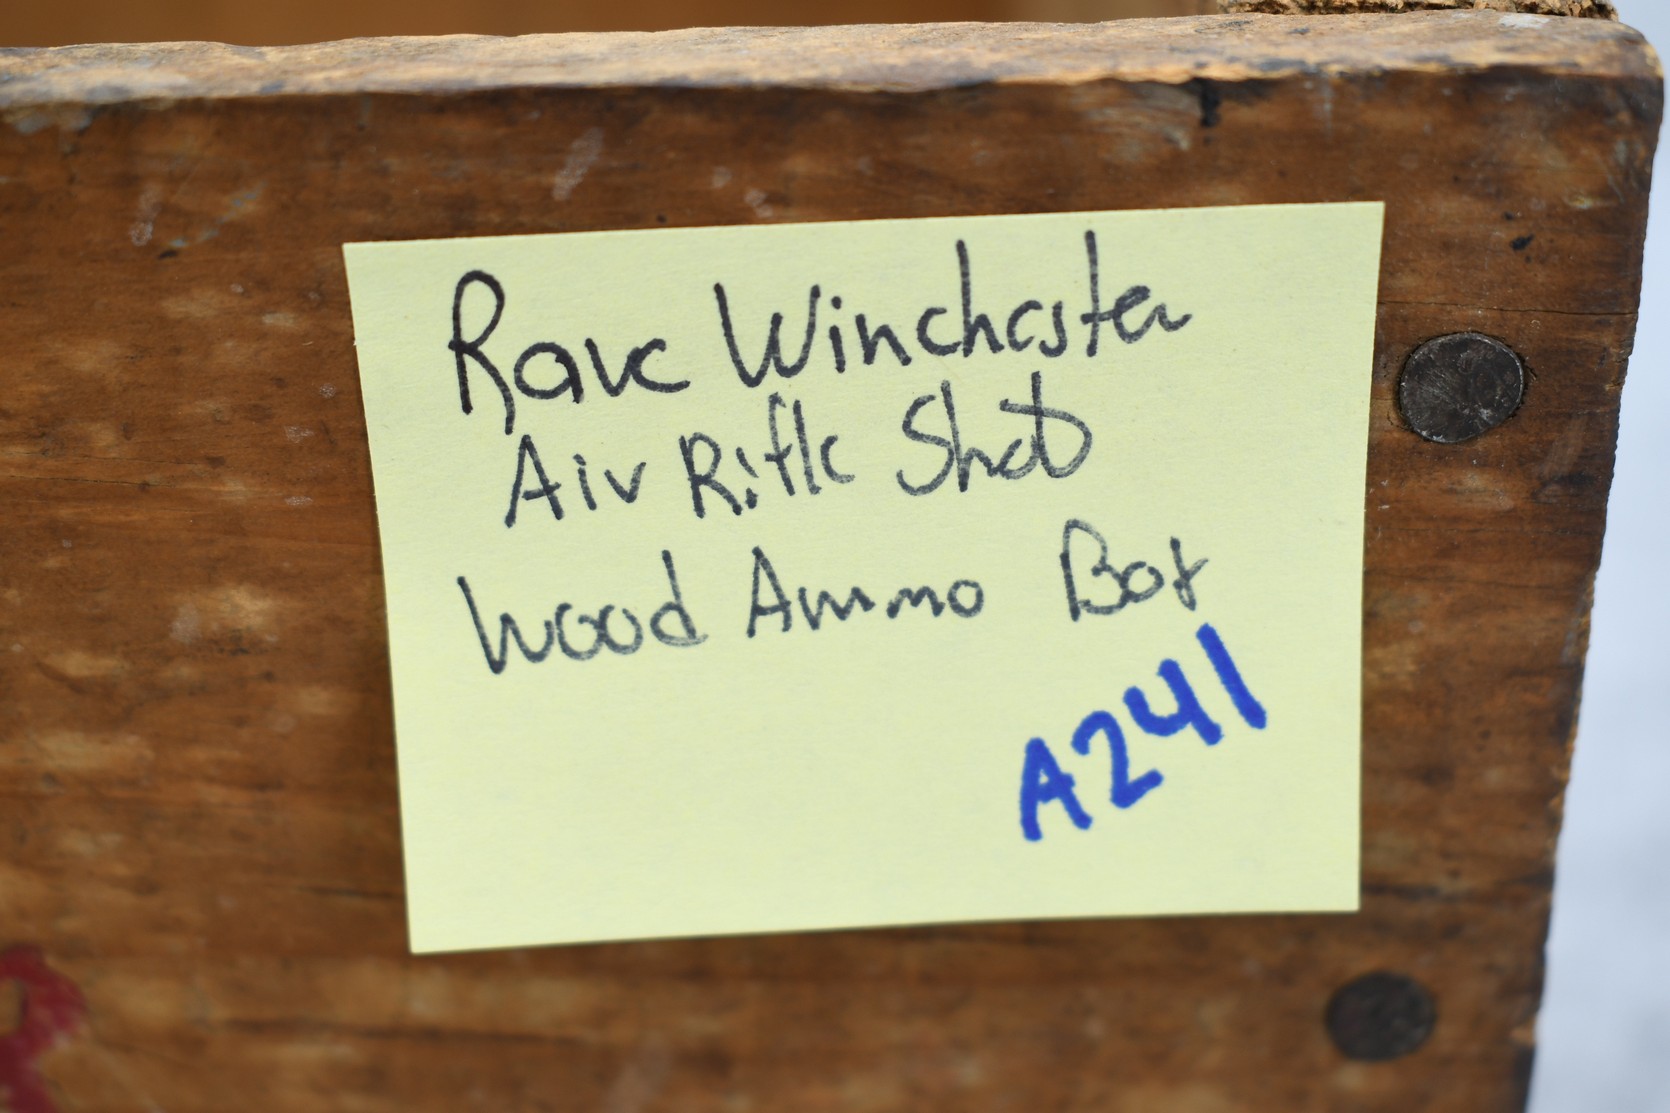 Rare Winchester
Air Rifle Shot
Wood Ammo Box
A241